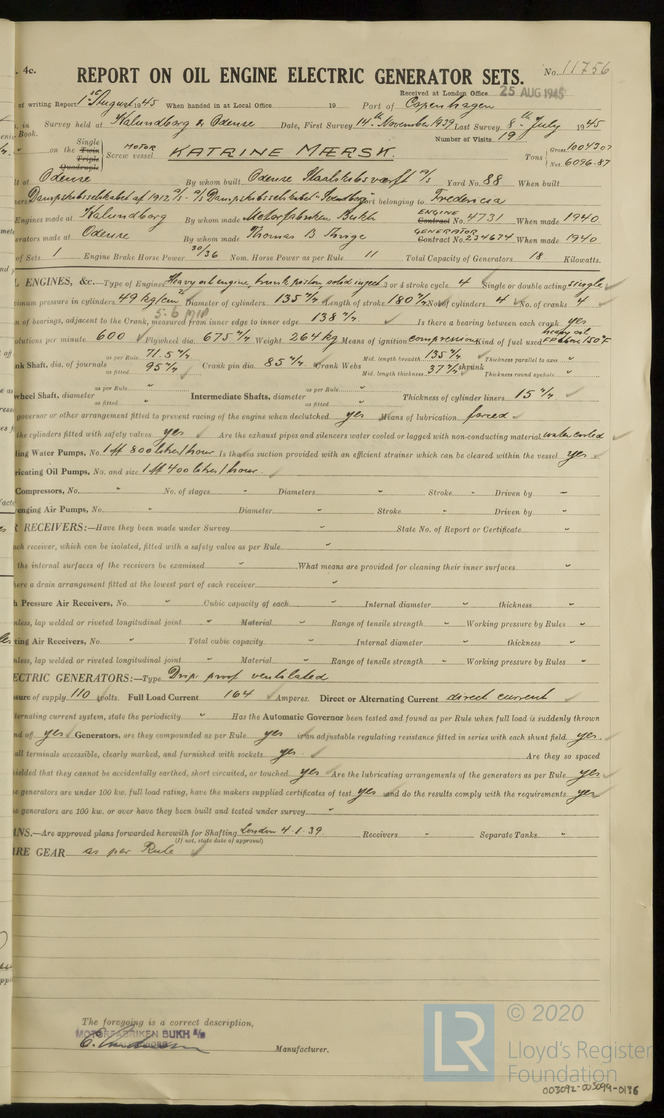 4c. REPORT ON OIL ENGINE ELECTRIC GENERATOR SETS. No. 11756
Received at London Office 25 AUG 1945
of writing Report 1st August 1945 When handed in at Local Office 19 Port of Copenhagen
in Survey held at Kalundborg & Odense Date, First Survey 14th November 1939 Last Survey 8th July 1945
Book. Number of Visits 19
on the Single Twin Triple Quadruple Screw vessel MOTOR KATRINE MÆRSK. Tons Gross 10043.07 Net 6096.87
at Odense By whom built Odense Staalskibsværft A/S Yard No. 88 When built
Dampskibsselskabet af 1912 A/S - A/S Dampskibsselskabet Svendborg Port belonging to Fredericia
Engines made at Kalundborg By whom made Motorfabriken Bukh ENGINE Contract No. 4731 When made 1940
made at Odense By whom made Thomas B. Thrige GENERATOR Contract No. 234674 When made 1940
of Sets 1 Engine Brake Horse Power 30/36 Nom. Horse Power as per Rule 11 Total Capacity of Generators 18 Kilowatts.
ENGINES, &c.—Type of Engines Heavy oil engine, trunk piston, solid inject. 2 or 4 stroke cycle 4 Single or double acting single
pressure in cylinders 49 kg/cm² Diameter of cylinders 135 m/m Length of stroke 180 m/m No. of cylinders 4 No. of cranks 4
5.6 MIP
of bearings, adjacent to the Crank, measured from inner edge to inner edge 138 m/m. Is there a bearing between each crank yes
per minute 600 Flywheel dia. 675 m/m Weight 264 kg Means of ignition compression Kind of fuel used heavy oil F.P. above 150°F
Shaft, dia. of journals as per Rule 71.5 m/m as fitted 95 m/m Crank pin dia. 85 m/m Crank Webs Mid. length breadth 135 m/m Mid. length thickness 37 m/m shrunk Thickness parallel to axis Thickness round eyehole
Shaft, diameter as per Rule as fitted Intermediate Shafts, diameter as per Rule as fitted Thickness of cylinder liners 15 m/m
governor or other arrangement fitted to prevent racing of the engine when declutched yes Means of lubrication forced
the cylinders fitted with safety valves yes Are the exhaust pipes and silencers water cooled or lagged with non-conducting material water cooled
Water Pumps, No. 1 off 800 liters/hour Is the sea suction provided with an efficient strainer which can be cleared within the vessel yes
Oil Pumps, No. and size 1 off 400 liter/hour
Compressors, No. " No. of stages " Diameters " Stroke " Driven by "
Air Pumps, No. " Diameter " Stroke " Driven by "
RECEIVERS:—Have they been made under Survey " State No. of Report or Certificate "
each receiver, which can be isolated, fitted with a safety valve as per Rule "
the internal surfaces of the receivers be examined " What means are provided for cleaning their inner surfaces "
there a drain arrangement fitted at the lowest part of each receiver "
Pressure Air Receivers, No. " Cubic capacity of each " Internal diameter " thickness "
lap welded or riveted longitudinal joint " Material " Range of tensile strength " Working pressure by Rules "
Air Receivers, No. " Total cubic capacity " Internal diameter " thickness "
lap welded or riveted longitudinal joint " Material " Range of tensile strength " Working pressure by Rules "
ELECTRIC GENERATORS:—Type Drip proof ventilated
of supply 110 volts. Full Load Current 164 Amperes. Direct or Alternating Current direct current
alternating current system, state the periodicity " Has the Automatic Governor been tested and found as per Rule when full load is suddenly thrown
and of yes Generators, are they compounded as per Rule yes is an adjustable regulating resistance fitted in series with each shunt field yes
all terminals accessible, clearly marked, and furnished with sockets yes Are they so spaced
shielded that they cannot be accidentally earthed, short circuited, or touched yes Are the lubricating arrangements of the generators as per Rule yes
generators are under 100 kw. full load rating, have the makers supplied certificates of test yes and do the results comply with the requirements yes
generators are 100 kw. or over have they been built and tested under survey "
PLANS.—Are approved plans forwarded herewith for Shafting London 4.1.39 Receivers " Separate Tanks "
(If not, state date of approval)
GEAR as per Rule
The foregoing is a correct description,
MOTORFABRIKEN BUKH A/S
Manufacturer.
© 2020
LR Lloyd's Register
Foundation
003092-003099-0136